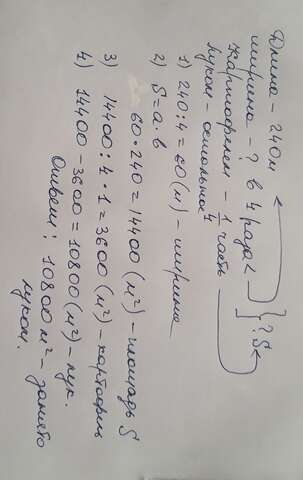 Длина - 240 м
ширина - ? в 4 раза <
картофелем - 1/4 часть
луком - остальное
} ? S
1) 240 : 4 = 60 (м) - ширина
2) S = a · b
60 · 240 = 14400 (м²) - площадь S
3) 14400 : 4 · 1 = 3600 (м²) - картофель
4) 14400 - 3600 = 10800 (м²) - лук.
Ответ: 10800 м² - занято
луком.